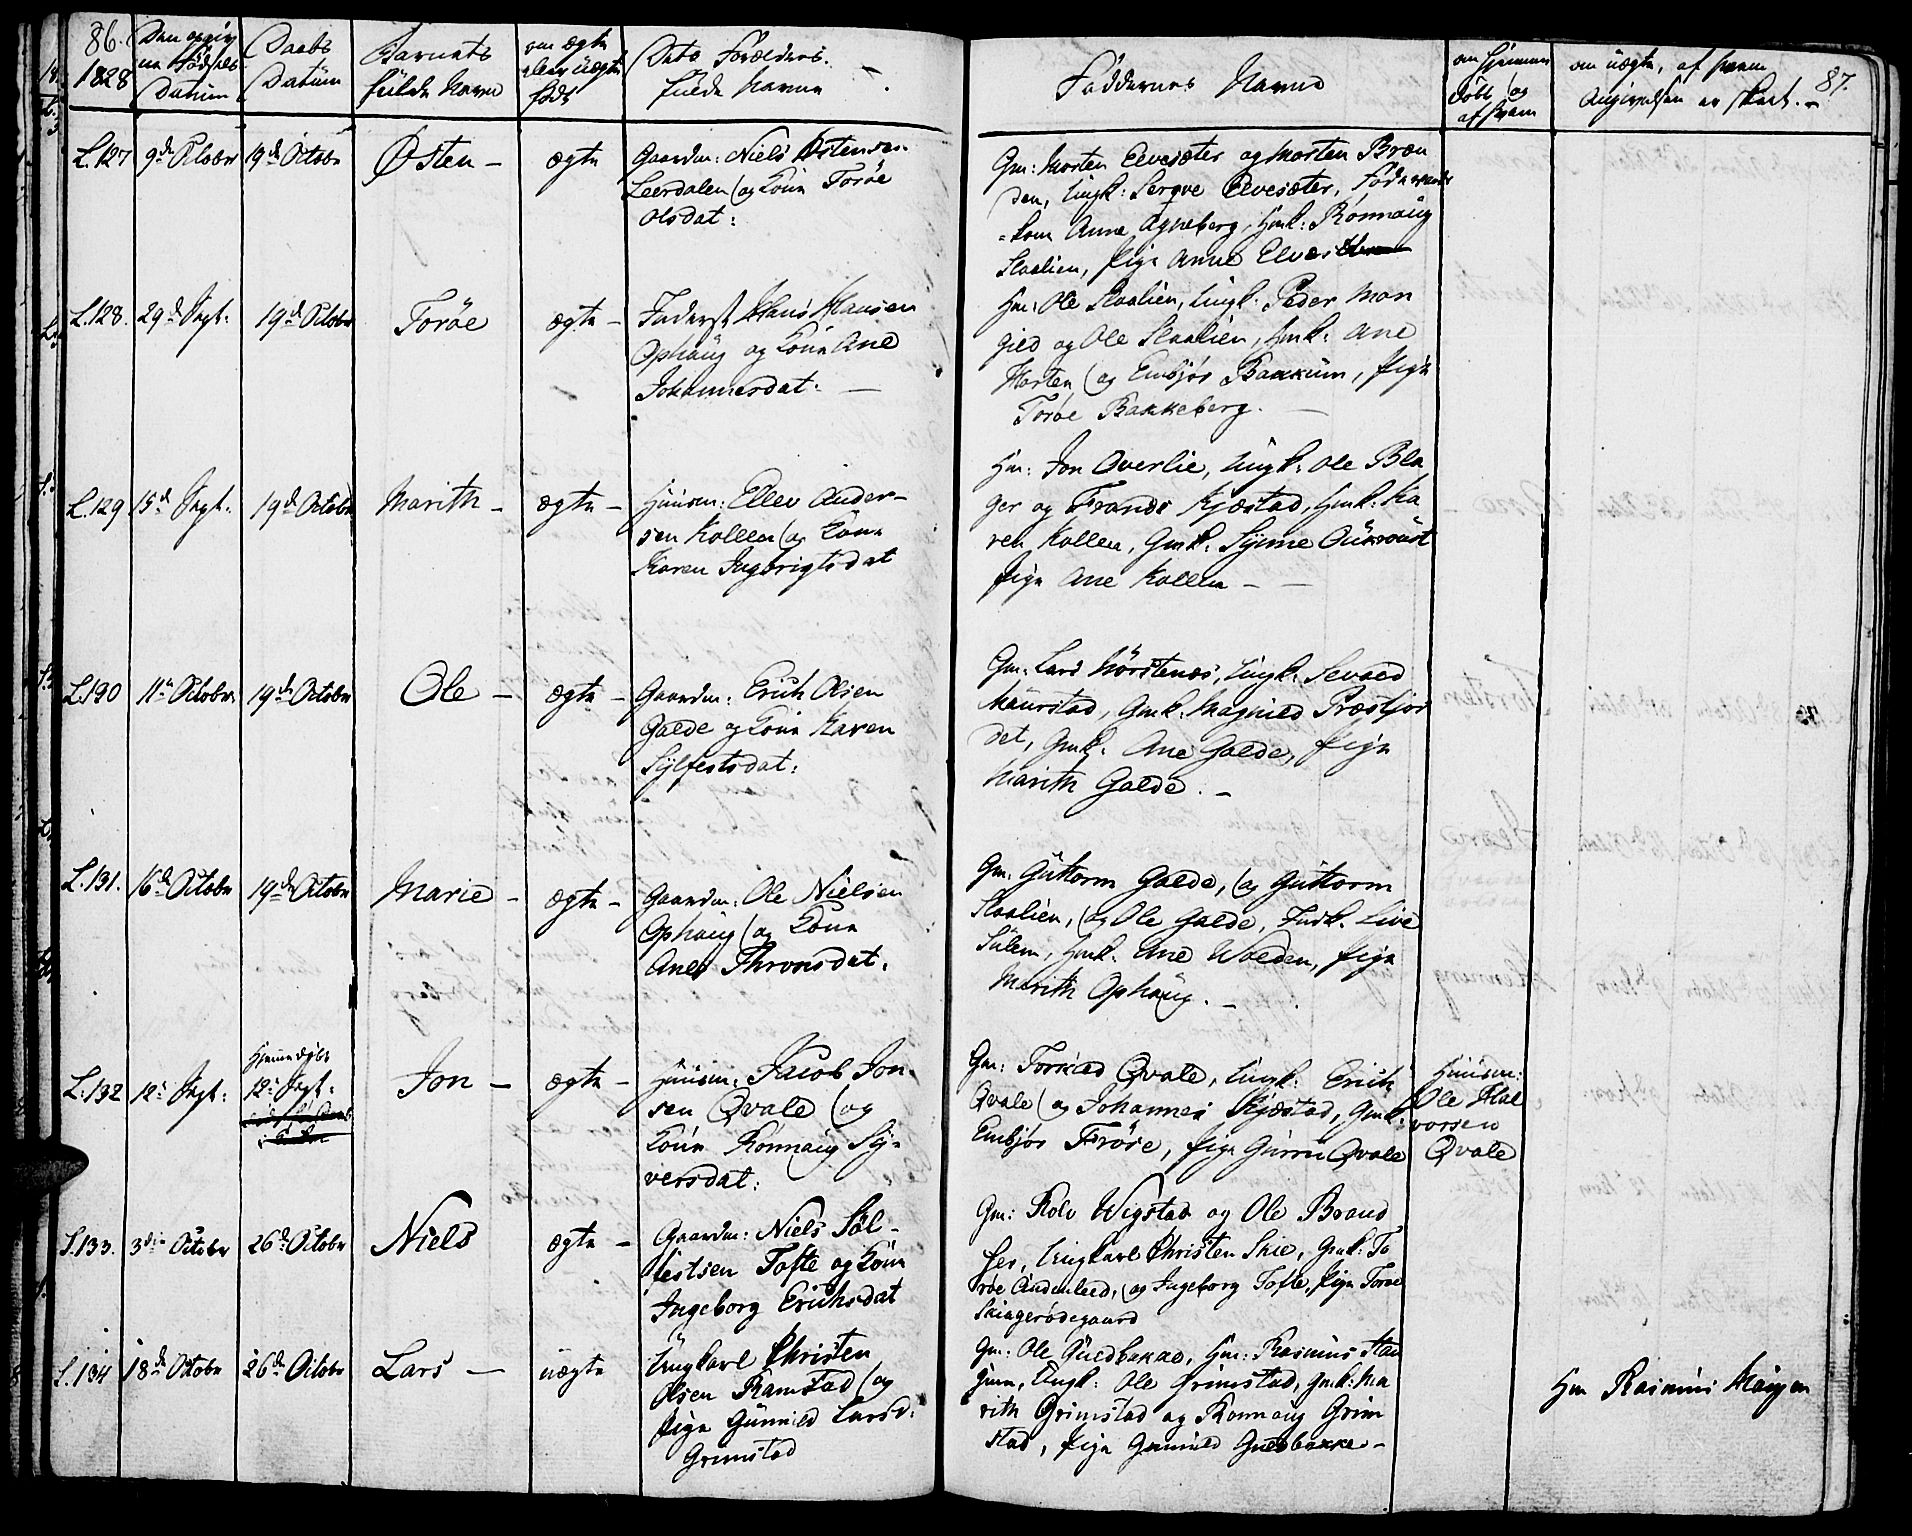 86.
1828
Den opgiv
ne Fødsels
Datum
Daabs
Datum
Barnets
fulde Navn
om ægte
eller uægte
født
Dets Forældres
fulde Navne
Faddernes Navne
om hjemme
døbt og
af hvem
om uægte, af hvem
Angivelsen er skeet.
87.
L.127
9de Octobr
19de Octobr
Østen -
ægte
Gaardm: Niels Østensen
Leerdalen og Kone Torøe
Olsdat:
Gm: Morten Elvesæter og Morten Bræn
den, Ungk: Sergve Elvesæter,
kone Anne Agneberg, Hmk: Rønnaug
Slaalien, Pige Anne
L.128.
29de Sept:
19de Octobr
Torøe
ægte -
Inderst Hans Hansen
Ophaug og Kone Ane
Johannesdat: -
Hm: Ole Slaalien, Ungk: Peder Mon
gied og Ole Slaalien, Hmk: Ane
Horten og Embjør Bakkum, Pige
Torøe Bakkeberg. -
L.129
15de Sept:
19de Octobr
Marith -
ægte -
Huusm: Ellev Ander-
sen Kollen og Kone
Karen Ingbrigtsdat
Hm: Jon Overlie, Ungk: Ole Bla
ger og Frands Kjæstad, Hmk: Ka
ren Kollen, Gmk: Synne
Pige Ane Kollen -
L.130
11te Octobr
19de Octobr
Ole -
ægte -
Gaardm: Erich Olsen
Galde og Kone Karen
Sylfestsdat:
Gm: Lars Nørstenæs, Ungk: Sevald
Maurstad, Gmk: Magnild Præstjor
det, Gmk: Ane Galde, Pige
Marith Galde. -
L.131.
16de Octobr
19de Octobr
Marie -
ægte -
Gaardm: Ole Nielsen
Ophaug og Kone
Ane Thronsdat.
Gm: Guttorm Galde, og Guttorm
Slaalien, og Ole Galde, Indk. Live
Sulem, Hmk: Ane Wolden, Pige
Marith Ophaug. -
L.132
12te Sept:
Hjemmedøbt
12te Sept:
Jon -
ægte -
Huusm: Jacob Jon-
sen Qvale og
Kone Rønnaug Sy-
versdat:
Gm: Torstad Qvale, Ungk: Erich
Qvale og Johannes Kjæstad, Gmk:
Embjør Frøse, Pige Guren Qvale
Huusm:
Ole Hal
vorsen
Qvale
L.133.
3die Octobr
26de Octobr
Niels
ægte -
Gaardm: Niels Søl-
festsen Tofte og Kone
Ingeborg Erichsdat
Gm: Rolv Wigstad og Ole Brand
fer, Ungkarl Christen Skie, Gmk: To
røe og Ingeborg Tofte, Pige Torøe
Skiagerødegaard
L.134
18de Octobr
26de Octobr
Lars -
uægte
Ungkarl Christen
Olsen Ramstad og
Pige Gunnild Larsd:
Grimstad
Gm: Ole Quedbakke, Hm: Rasmus Hau
gen, Ungk: Ole Grimstad, Gmk: Ma
rith Grimstad og Rønnaug Grim
stad, Pige Gunnild Quedbakke -
Hm Rasmus Haugen